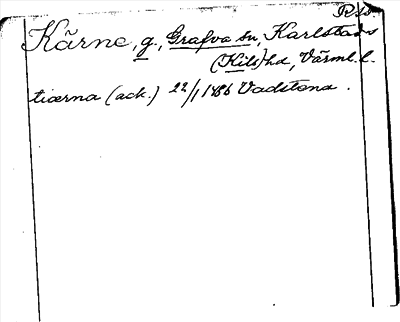 R.s.
Kärne, g., Grafva sn, Karlstads
(Kils) hd, Värml. l.
tiærna (ack.) 22/1 1486 Vadstena.